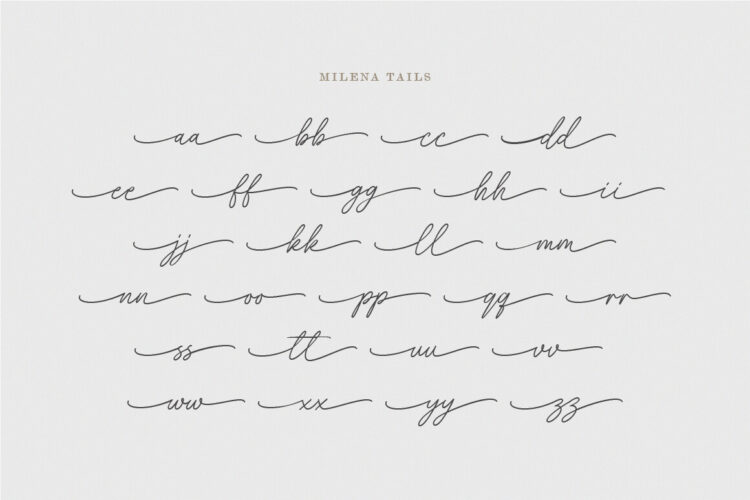 MILENA TAILS
aa bb cc dd
ee ff gg hh ii
jj kk ll mm
nn oo pp qq rr
ss tt uu vv
ww xx yy zz